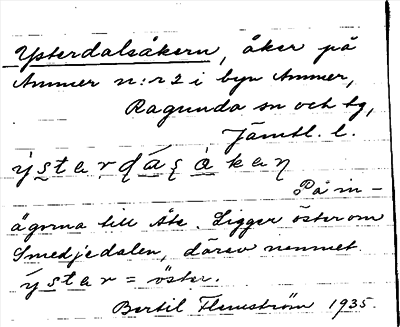 Ysterdalsåkern, åker på
Ammer n:r 2 i byn Ammer,
Ragunda sn och tg,
Jämtl. l.
På in-
ägorna till Åk. Ligger öster om
Smedjedalen, därav namnet.
ýstar = öster.
Bertil Flemström 1935.